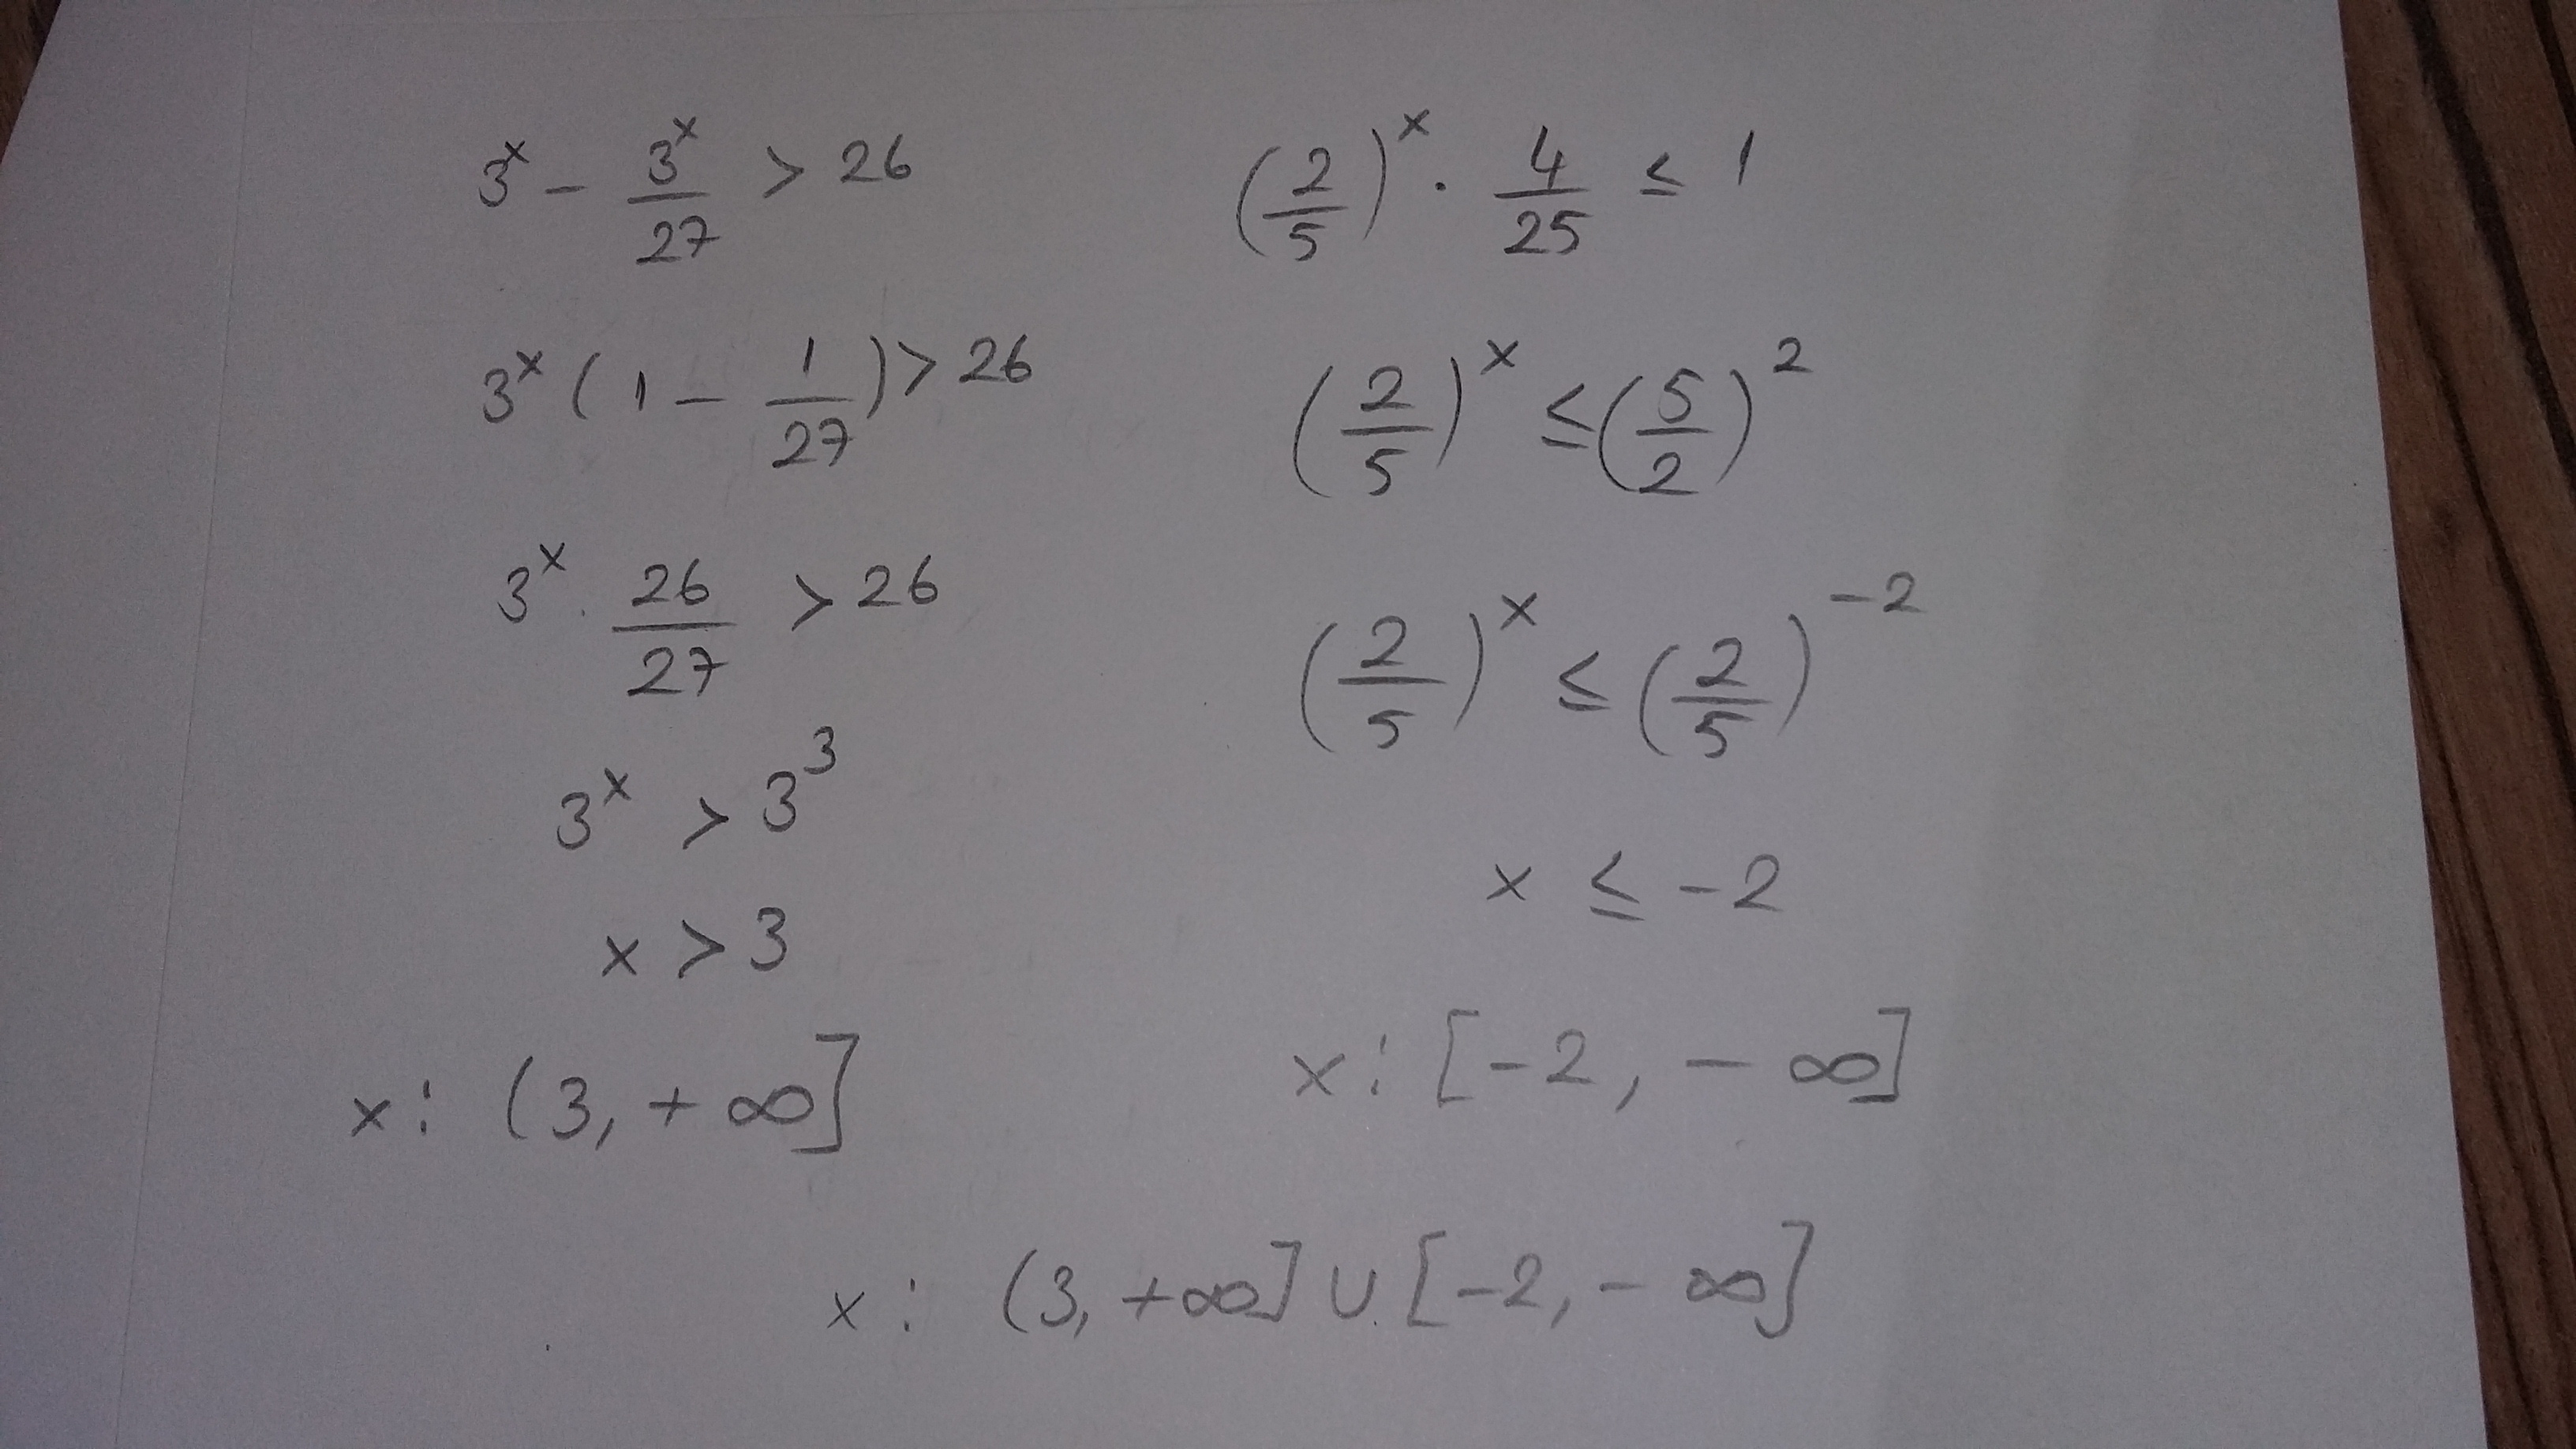 3^x - 3^x/27 > 26
3^x (1 - 1/27) > 26
3^x · 26/27 > 26
3^x > 3^3
x > 3
x: (3, +∞]
(2/5)^x · 4/25 ≤ 1
(2/5)^x ≤ (5/2)^2
(2/5)^x ≤ (2/5)^-2
x ≤ -2
x: [-2, -∞]
x: (3, +∞] ∪ [-2, -∞]